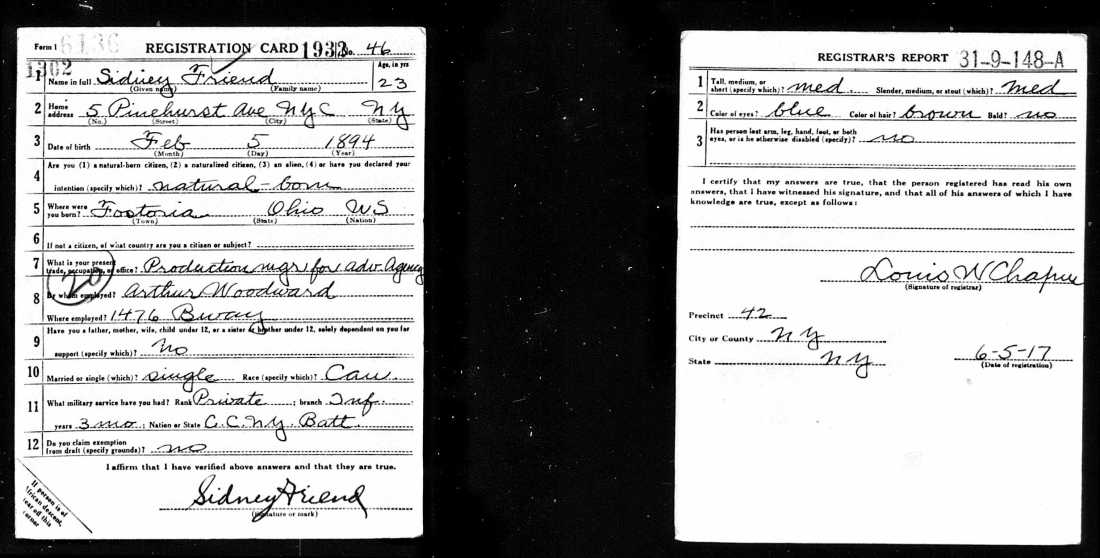 Form 1 6136 REGISTRATION CARD 1932 No. 46
1302
1 Name in full Sidney Friend Age, in yrs 23
(Given name) (Family name)
2 Home address 5 Pinehurst Ave NYC NY
(No.) (Street) (City) (State)
3 Date of birth Feb 5 1894
(Month) (Day) (Year)
4 Are you (1) a natural-born citizen, (2) a naturalized citizen, (3) an alien, (4) or have you declared your
intention (specify which)? natural-born
5 Where were you born? Fostoria Ohio US
(Town) (State) (Nation)
6 If not a citizen, of what country are you a citizen or subject?
7 What is your present trade, occupation, or office? Production mgr for adv. Agency
20
8 By whom employed? Arthur Woodward
Where employed? 1476 Bway
9 Have you a father, mother, wife, child under 12, or a sister or brother under 12, solely dependent on you for
support (specify which)? No
10 Married or single (which)? single Race (specify which)? Cau
11 What military service have you had? Rank Private ; branch Inf.
years 3 mo ; Nation or State C.C.N.Y. Batt.
12 Do you claim exemption from draft (specify grounds)? no
I affirm that I have verified above answers and that they are true.
Sidney Friend
(Signature or mark)
If person is of
African descent,
tear off this
corner
REGISTRAR'S REPORT 31-9-148-A
1 Tall, medium, or short (specify which)? med. Slender, medium, or stout (which)? med
2 Color of eyes? blue Color of hair? brown Bald? no
3 Has person lost arm, leg, hand, foot, or both eyes, or is he otherwise disabled (specify)? no
I certify that my answers are true, that the person registered has read his own
answers, that I have witnessed his signature, and that all of his answers of which I have
knowledge are true, except as follows:
Louis W
(Signature of registrar)
Precinct 42
City or County NY
State NY 6-5-17
(Date of registration)